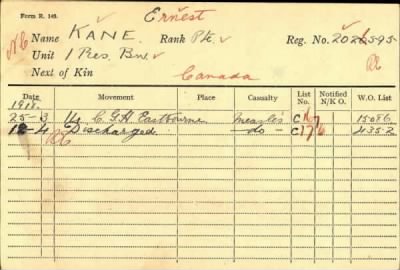 Form R. 149. Ernest
NC Name KANE. Rank Pte. Reg. No. 2026595
Unit 1 Res. Bn.
Next of Kin Canada
Date Movement Place Casualty List No. Notified N/K O. W.O. List
1918.
25-3 14 C.G.H. Eastbourne Measles C 15086
12-4 Discharged -do- C176 4352